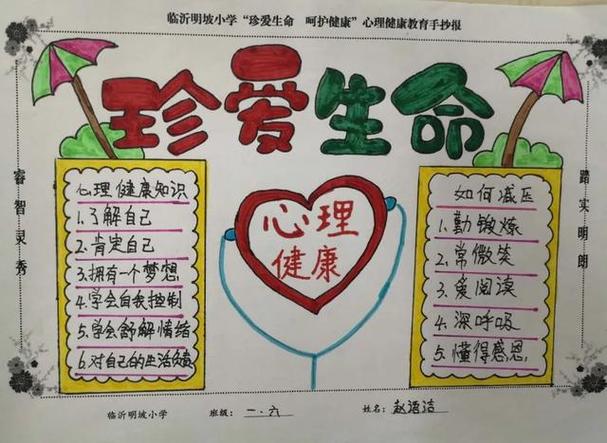 临沂明坡小学“珍爱生命 呵护健康”心理健康教育手抄报
珍爱生命
睿智灵秀
心理健康知识
1.了解自己
2.肯定自己
3.拥有一个梦想
4.学会自我控制
5.学会舒解情绪
6.对自己的生活负责
心理
健康
如何减压
1.勤锻炼
2.常微笑
3.爱阅读
4.深呼吸
5.懂得感恩
踏实明朗
临沂明坡小学 班级：一.六 姓名：赵语洁